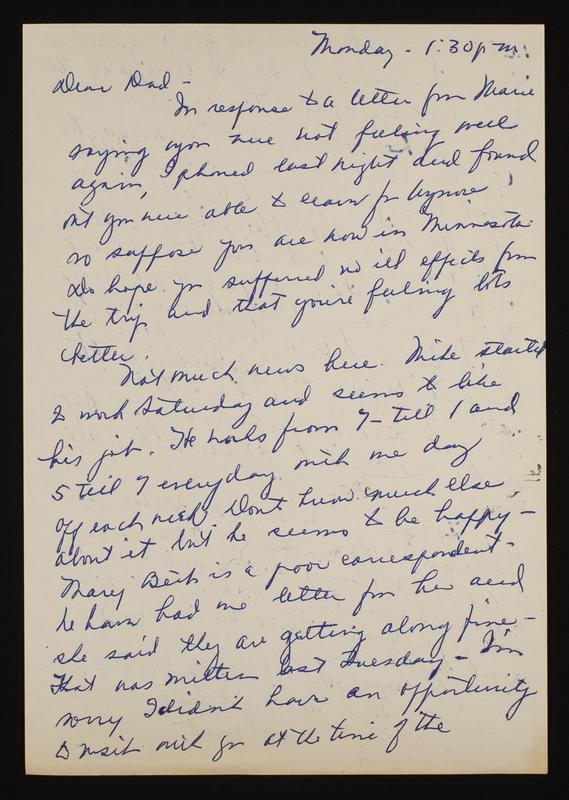 Monday - 1:30 pm.
Dear Dad -
In response to a letter from Marie
saying you were not feeling well
again, I phoned last night and found
out you were able to leave for
so suppose you are now in Minnesota.
Do hope you suffered no ill effects from
the trip and that you're feeling lots
better.
Not much news here. Mike started
to work Saturday and seems to like
his job. He works from 7 - till 1 and
5 till 7 everyday with one day
off each week. Don't know much else
about it but he seems to be happy -
Mary Beth is a poor correspondent -
We have had one letter from her and
she said they are getting along fine -
That was written last Tuesday - I'm
sorry I didn't have an opportunity
to visit with you at the time of the